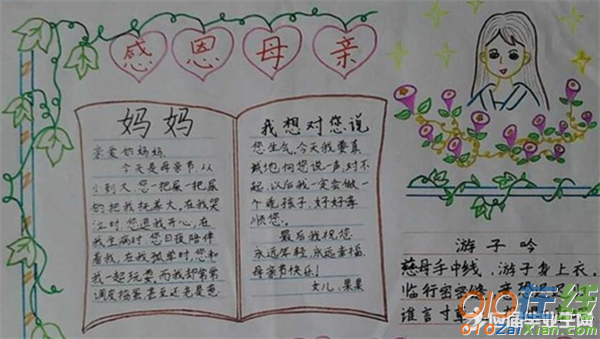 感恩母亲
妈妈
亲爱的妈妈,
今天是母亲节,从
小到大,您一把屎一把
的把我抚养大,在我哭
泣时,您逗我开心,在
我生病时,您日夜陪伴
着我,在我孤单时,您和
我一起玩耍,而我却常常
调皮捣蛋,甚至还老是惹
我想对您说
您生气,今天我要真
诚地向您说一声,对不
起,以后我一定会做一
个乖孩子,好好孝
顺您。
最后我祝您
永远年轻,永远幸福,
母亲节快乐!
女儿:果果
游子吟
慈母手中线,游子身上衣。
临行密密缝,意恐
谁言寸草
910在线
910zaixian.com
应届毕业生网